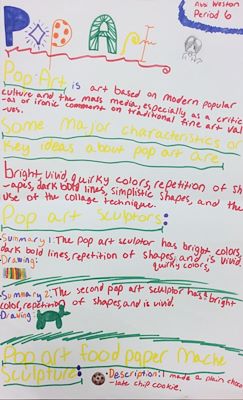 Avis Weston
Period 6
Pop Art
Pop-Art is art based on modern popular
culture and the mass media, especially as a critic
-al or ironic comment on traditional fine art val
-ues.
Some major characteristics or
key ideas about pop art are.
bright, vivid, quirky colors, repetition of sh
-apes, dark bold lines, simplistic shapes, and the
use of the collage technique.
Pop art sculptors:
Summary 1: The pop art sculptor has bright colors,
dark bold lines, repetition of shapes, and is vivid.
Drawing: quirky colors,
Summary 2: The second pop art sculptor has bright
color, repetition of shapes, and is vivid.
Drawing:
Pop art food paper mache
sculpture: Description: I made a plain choco
-late chip cookie.